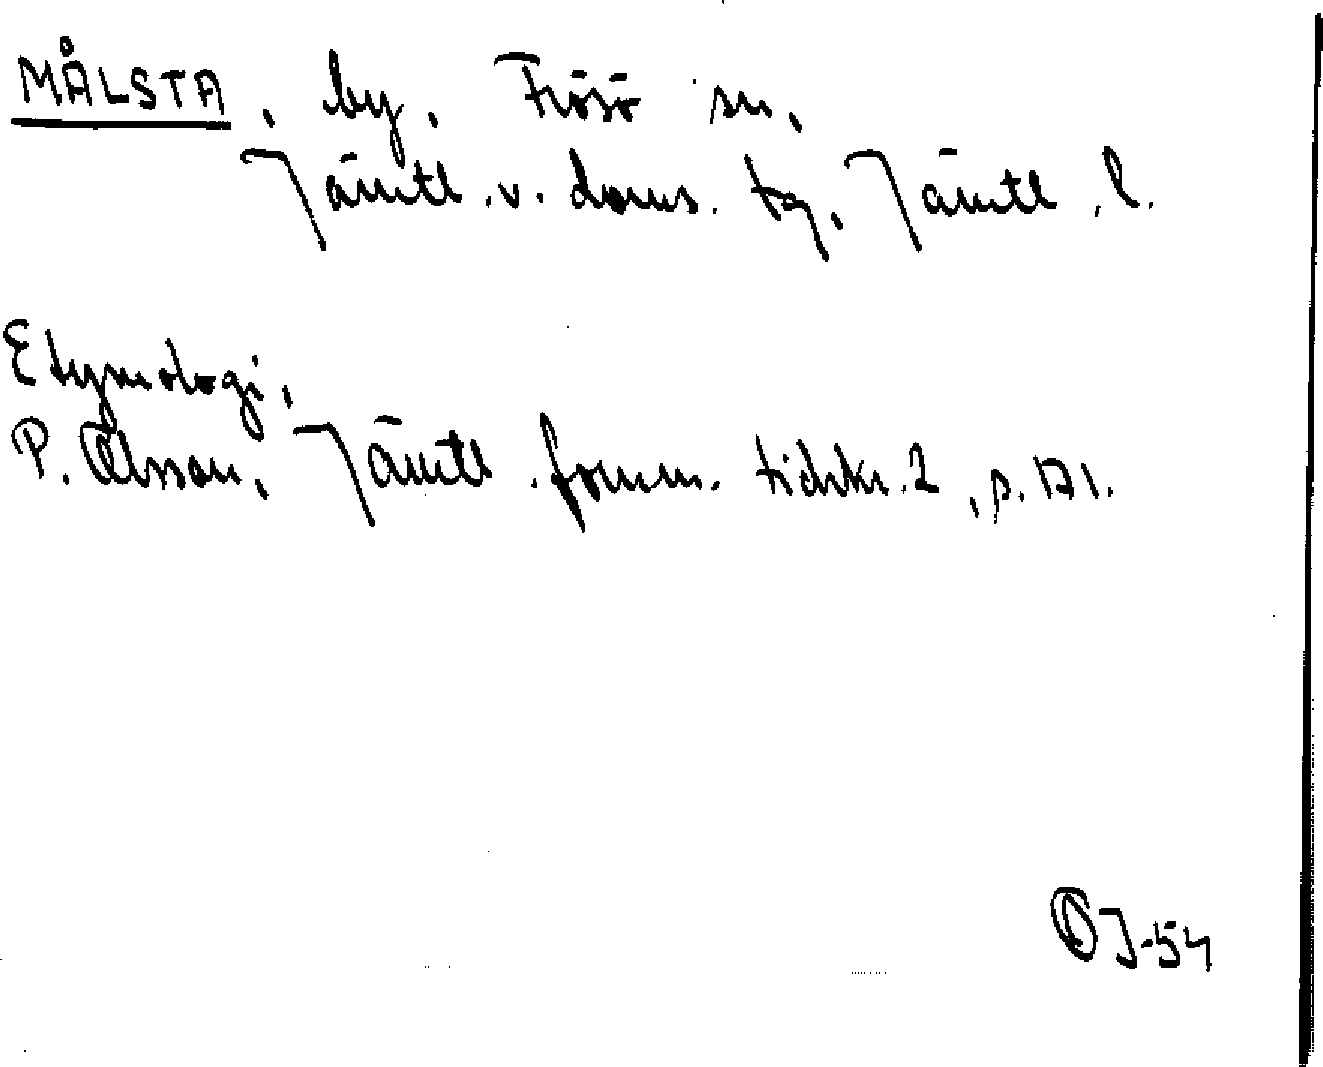 MÅLSTA, by, Frösö sn,
Jämtl. v. doms. tg, Jämtl. l.
Etymologi,
P. Olsson, Jämtl. fornm. tidskr. 2, s. 171.
OJ-54